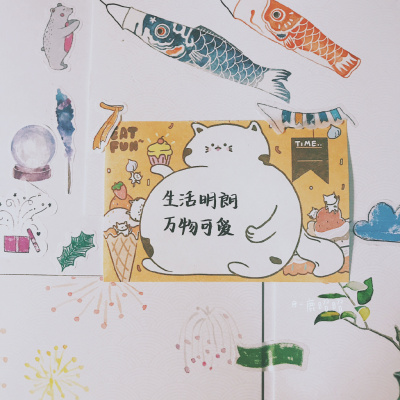 EAT
FUN
TIME..
生活明朗
万物可爱